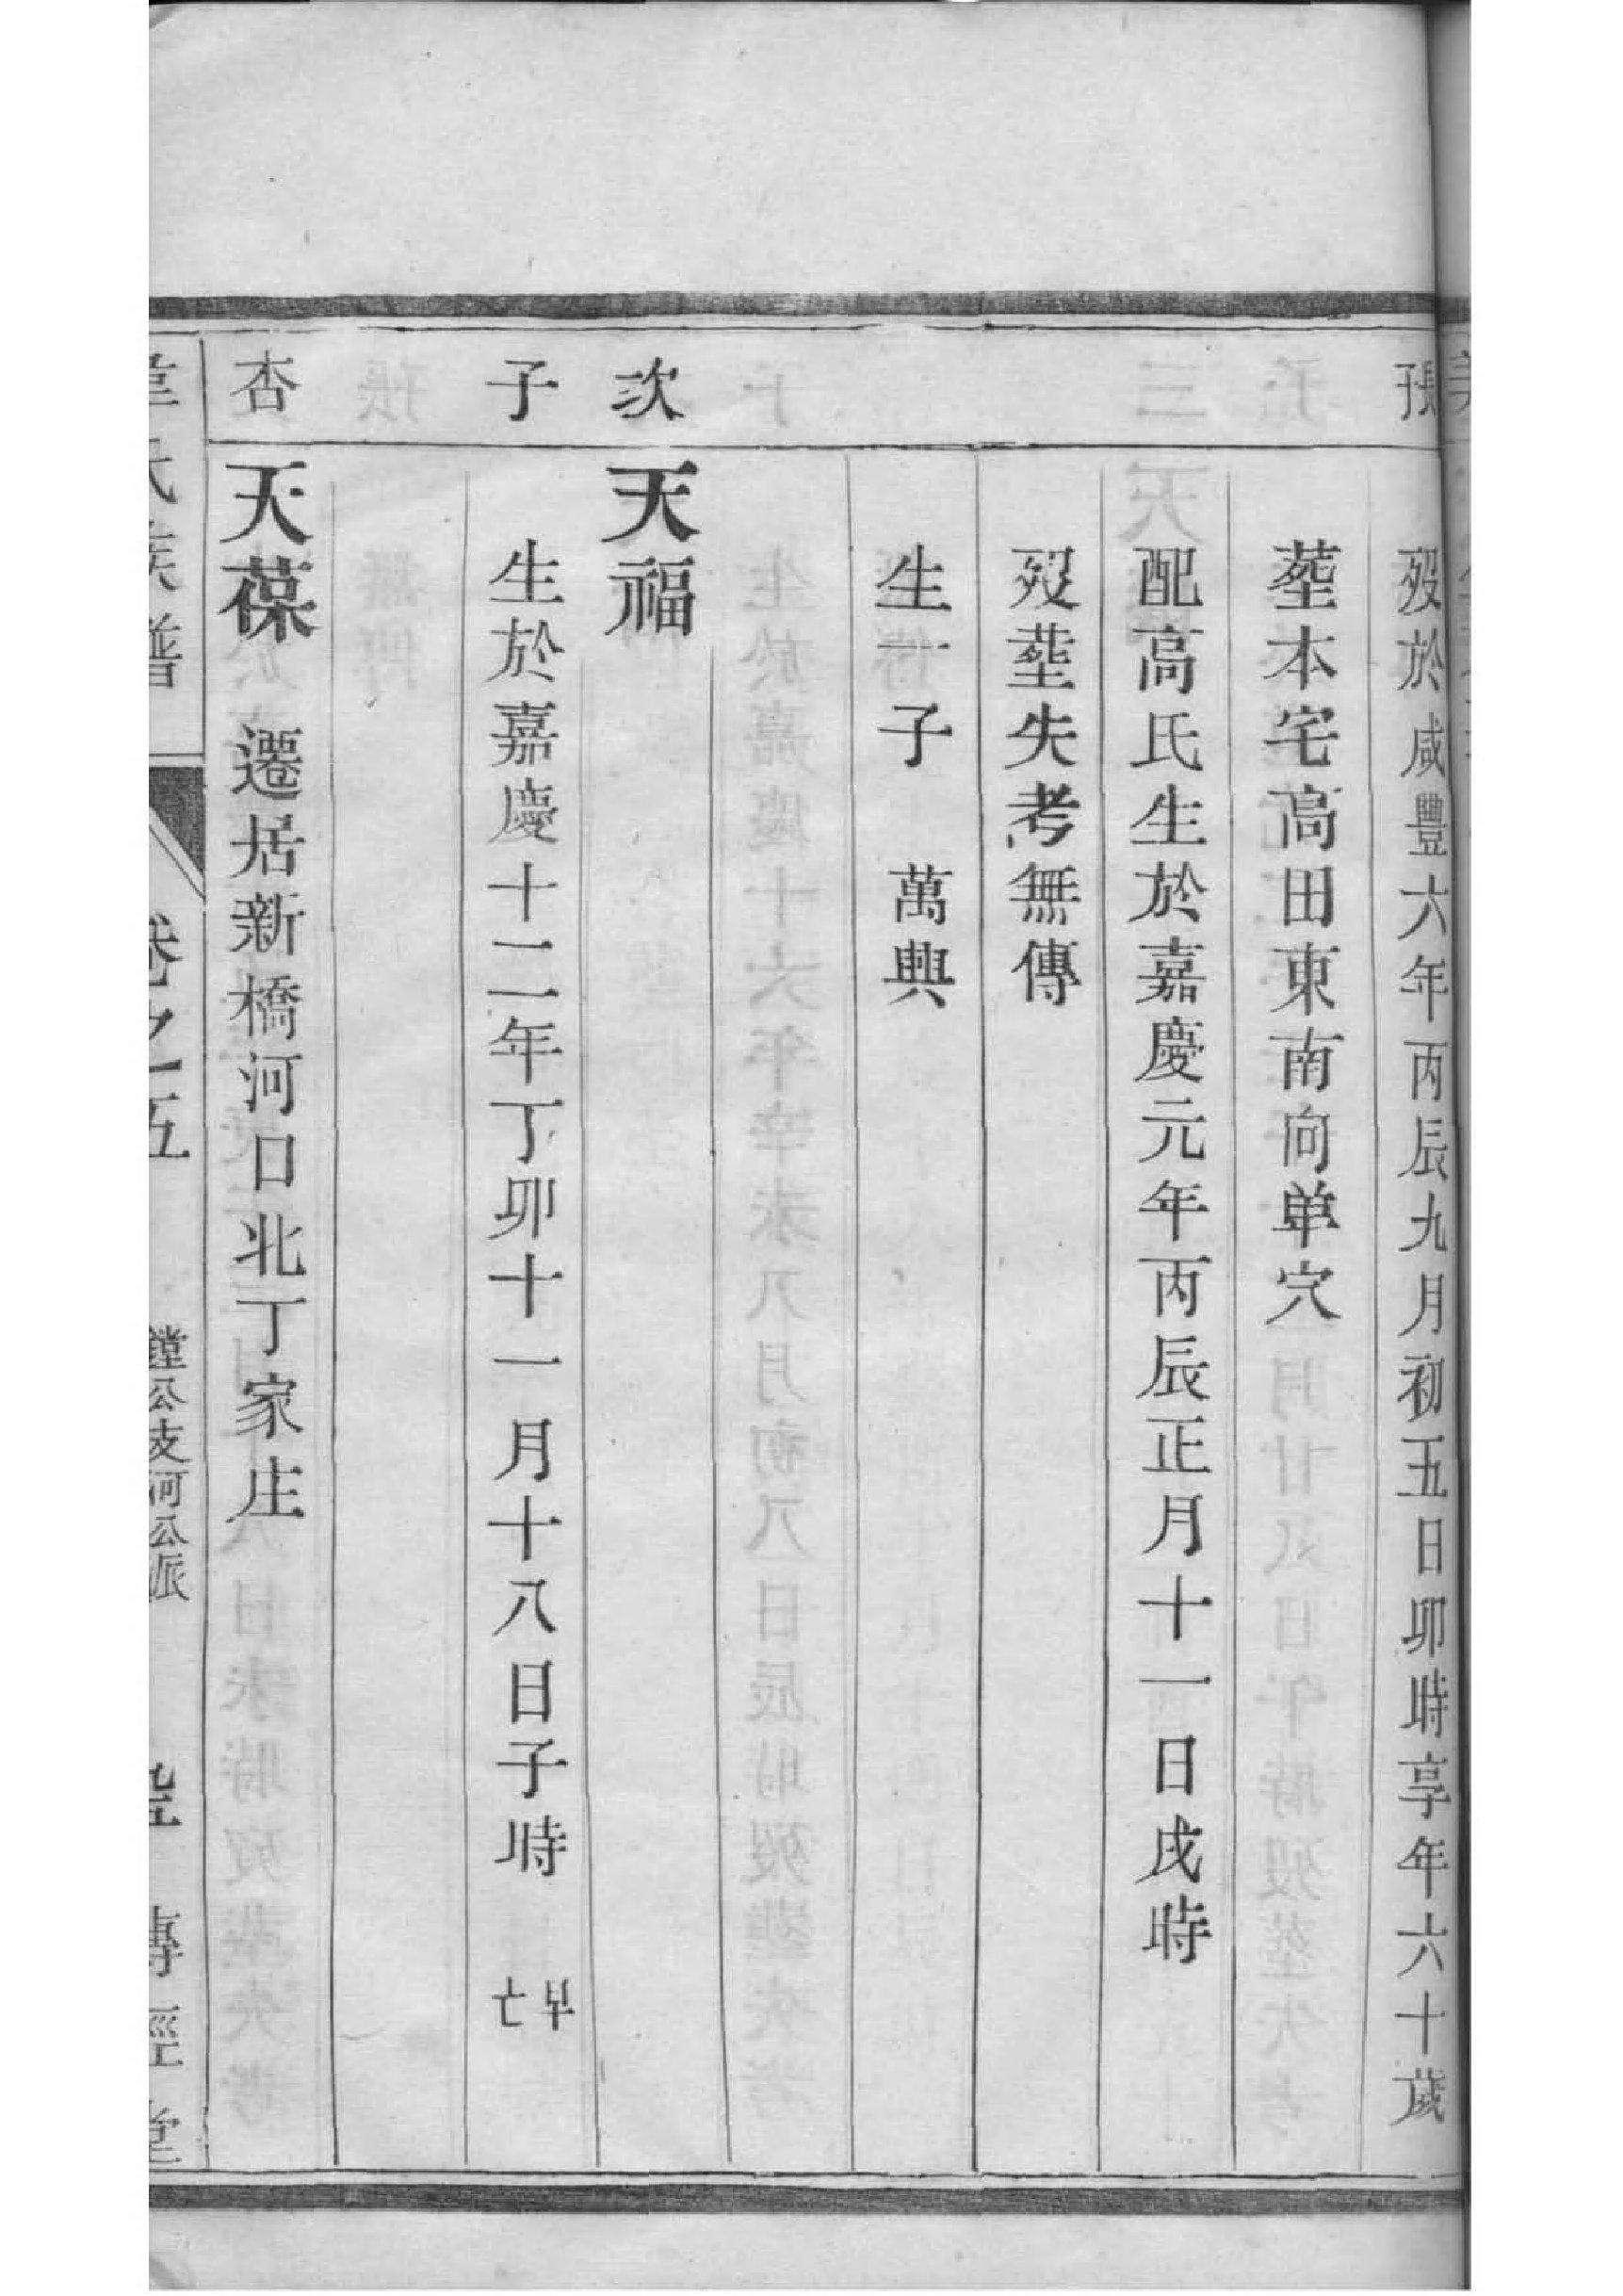 張
歿於咸豐六年丙辰九月初五日卯時享年六十歲
塟本宅高田東南向单穴
配高氏生於嘉慶元年丙辰正月十一日戌時
歿塟失考無傳
生一子 萬興
次
天福
子
生於嘉慶十二年丁卯十一月十八日子時 早亡
杏
天葆 遷居新橋河口北丁家庄
氏族譜 卷之五 鏜公支河公派 傳經堂